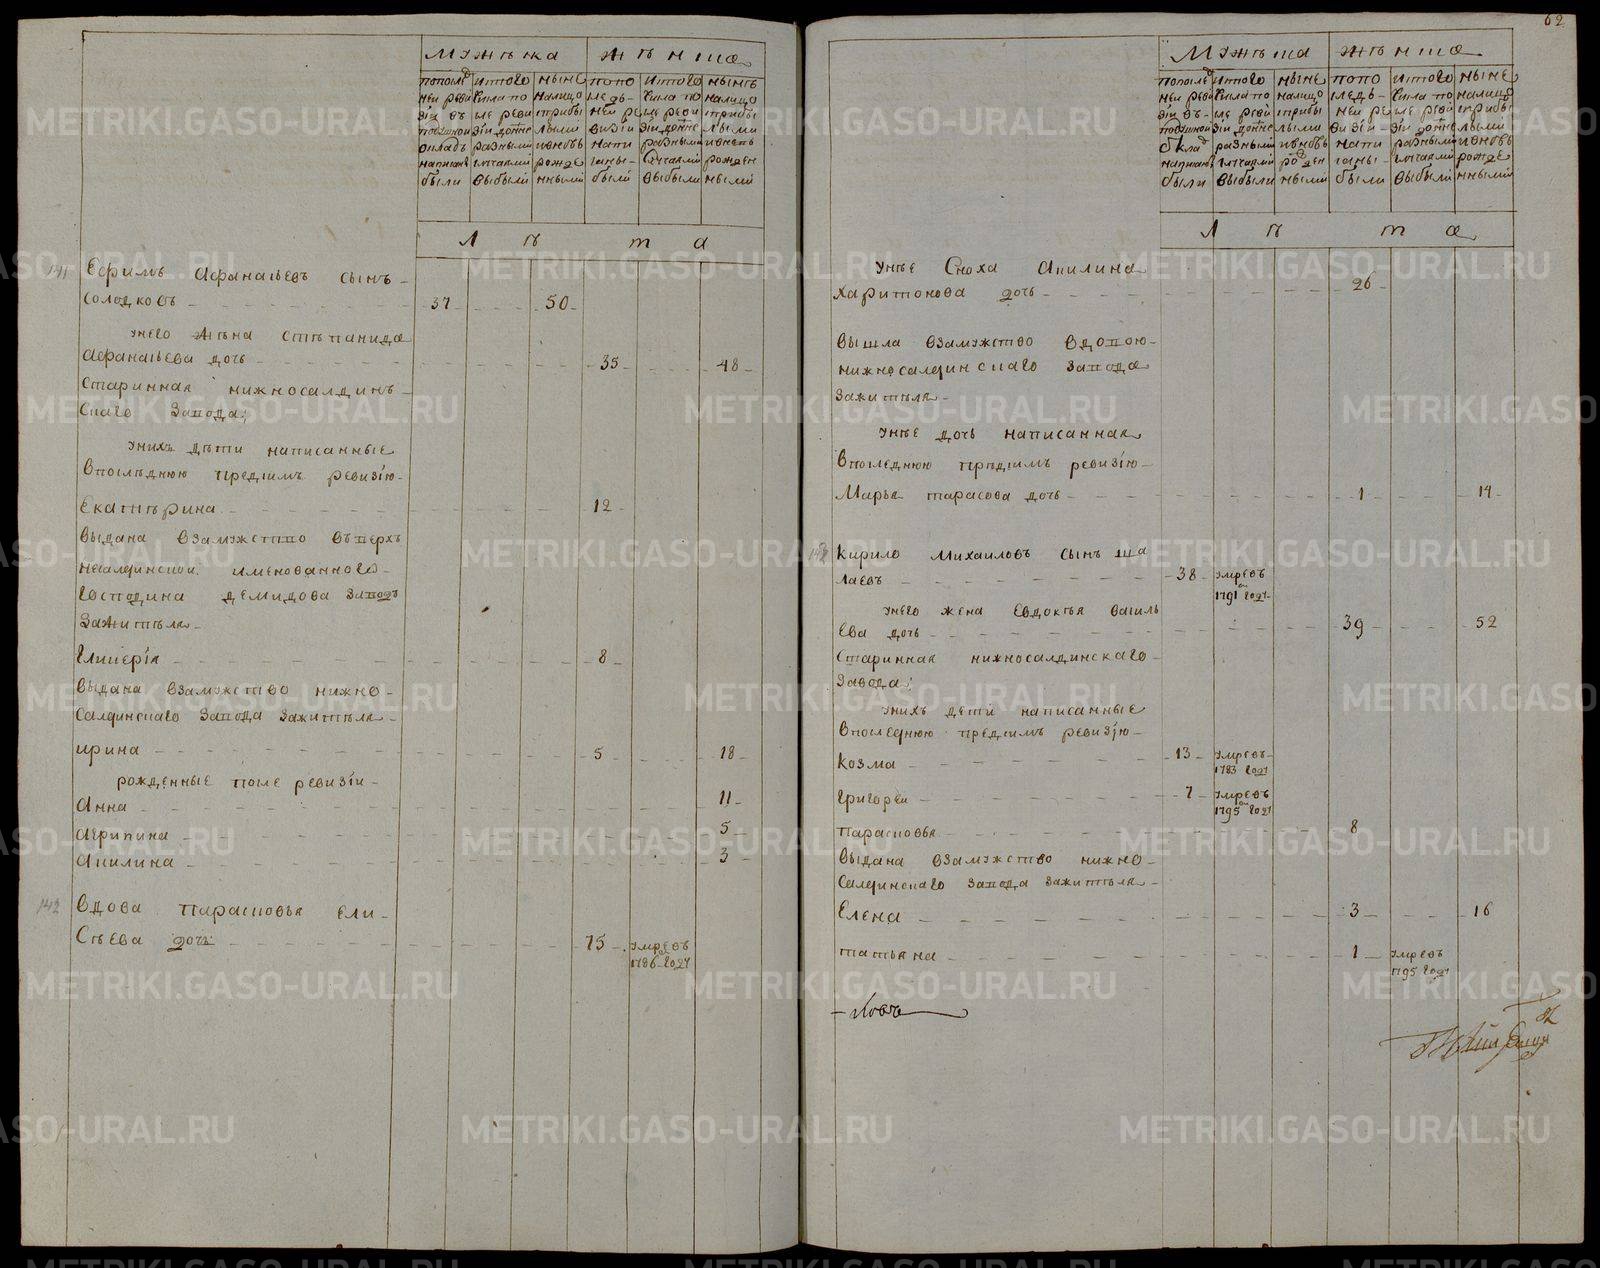 мужеска
женска
последней ревизии въ подушной окладъ написаны были
изтого числа после ревизии до ныне разными случаями выбыли
ныне налицо с прибылыми и вновь рожденными
по последней ревизии написаны были
изтого числа после ревизии до ныне разными случаями выбыли
ныне налицо с прибылыми и вновь рожденными
л ѣ т а
141 Ефимъ Афанасьевъ сынъ
Солодковъ 37 50
унего жена Стѣпанида
Афанасьева дочь 35 48
Старинная нижносалдинъ
скаго завода;
унихъ дѣти написанные
впоследнюю предсимъ ревизiю
Екатѣрина 12
выдана взамужство въверхъ
несалдинской именованного
Господина демидова заводъ
зажитѣля
Гликерiя 8
выдана взамужство нижно
салдинскаго завода зажитѣля
ирина 5 18
рожденные после ревизiи
Анна 11
Агрипина 5
Акилина 3
142 Вдова Парасковья Ели
сѣева дочь 75 умре въ
1786 году
62
мужеска
женска
л ѣ т а
унѣе Сноха Акилина
Харитонова дочь 26
вышла взамужство вдовою
нижносалдинскаго завода
зажитѣля
унѣе дочь написанная
впоследнюю предсимъ ревизiю
Марья тарасова дочь 1 14
143 Кирило Михаиловъ сынъ ша
лаевъ 38 умре въ
1791 году
унего жена Евдокья василь
ева дочь 39 52
Старинная нижносалдинскаго
завода;
унихъ дети написанные
впоследнюю предсимъ ревизiю
Козма 13 умре въ
1783 году
григореи 7 умре въ
1795 году
парасковья 8
выдана взамужство нижно
салдинскаго завода зажитѣля
Елена 3 16
татьяна 1 умре въ
1795 году
METRIKI.GASO-URAL.RU